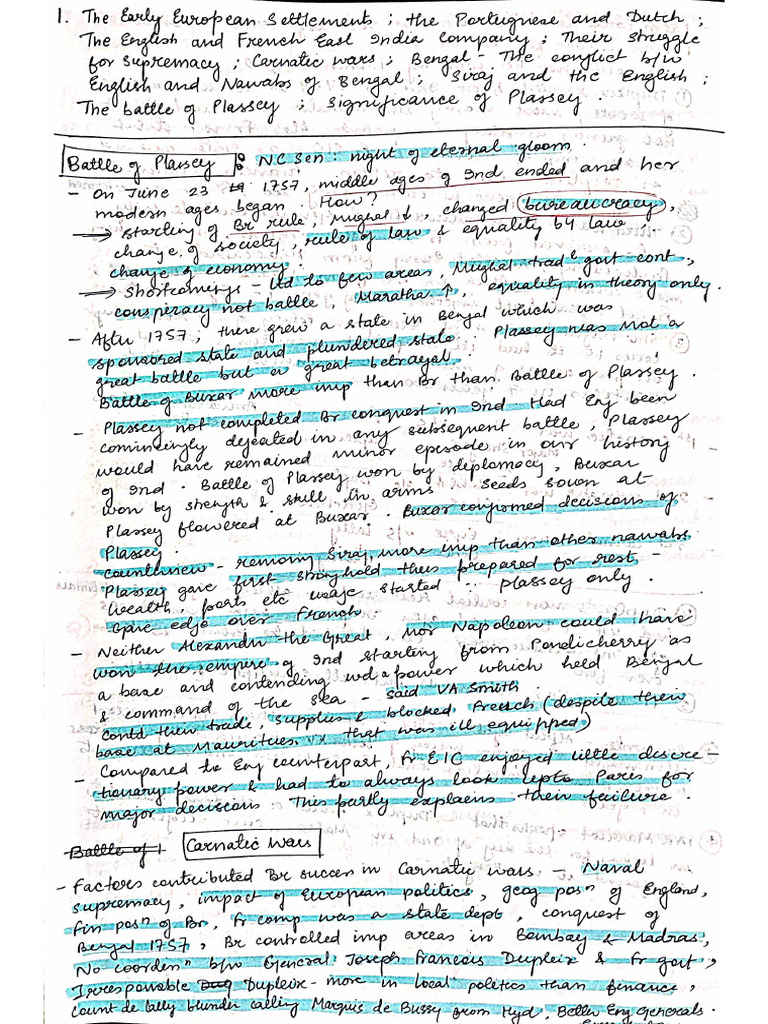 1. The Early European Settlements ; the Portuguese and Dutch ;
The English and French East India Company ; Their struggle
for supremacy ; Carnatic wars ; Bengal - The conflict b/w
English and Nawabs of Bengal ; Siraj and the English ;
The battle of Plassey ; Significance of Plassey .
Battle of Plassey : NC Sen : night of eternal gloom .
- On June 23 1757, middle ages of Ind ended and her
modern ages began . How?
→ Starting of Br rule, Mughal ↓, changed bureaucracy,
change of society, rule of law & equality by law
change of economy.
→ Shortcomings - Ltd to few areas, Mughal tradl govt cont.,
conspiracy not battle, Maratha ↑, equality in theory only.
- After 1757 ; there grew a state in Bengal which was
sponsored state and plundered state . Plassey was not a
great battle but a great betrayal .
Battle of Buxar more imp than Br than Battle of Plassey .
- Plassey not completed Br conquest in Ind. Had Eng been
convincingly defeated in any subsequent battle, Plassey
would have remained minor episode in our history
of Ind . Battle of Plassey won by diplomacy, Buxar
won by strength & skill in arms . Seeds sown at
Plassey flowered at Buxar . Buxar confirmed decisions of
Plassey .
counterview - removing Siraj more imp than other nawabs
Plassey gave first stronghold thus prepared for rest -
Wealth, ports etc usage started ∵ Plassey only .
Gave edge over French
- Neither Alexander the Great, nor Napoleon could have
won the empire of Ind starting from Pondicherry as
a base and contending wd a power which held Bengal
& command of the sea - said VA Smith .
contd their trade, supplies & blocked French (despite their
base at Mauritues that was ill equipped)
- Compared to Eng counterpart, Fr EIC enjoyed little discre-
tionary power & had to always look upto Paris for
major decisions This partly explains their failure .
Battle of Carnatic Wars
- Factors contributed Br success in Carnatic wars - Naval
supremacy, impact of European politics, geog posn of England,
fin posn of Br, Fr comp was a state dept, conquest of
Bengal 1757, Br controlled imp areas in Bombay & Madras,
No coordenn b/w General Joseph Francois Dupleix & Fr govt,
Irresponsable Dupleix - more in local politics than finance,
count de lally blunder calling Marquis de Bussy from Hyd, Better Eng Generals.